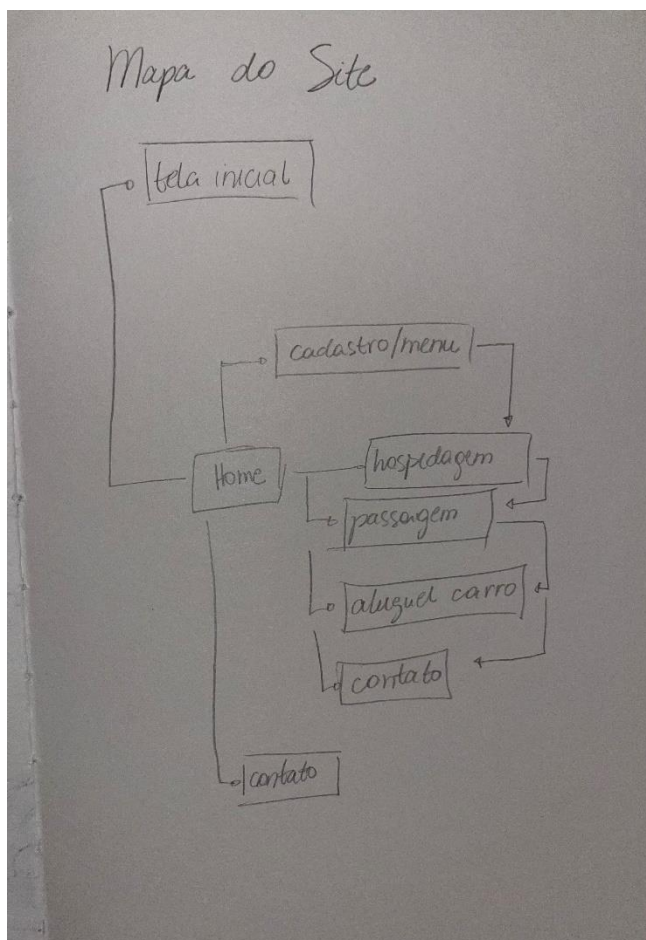 Mapa do Site
tela inicial
cadastro/menu
Home
hospedagem
passagem
aluguel carro
contato
contato